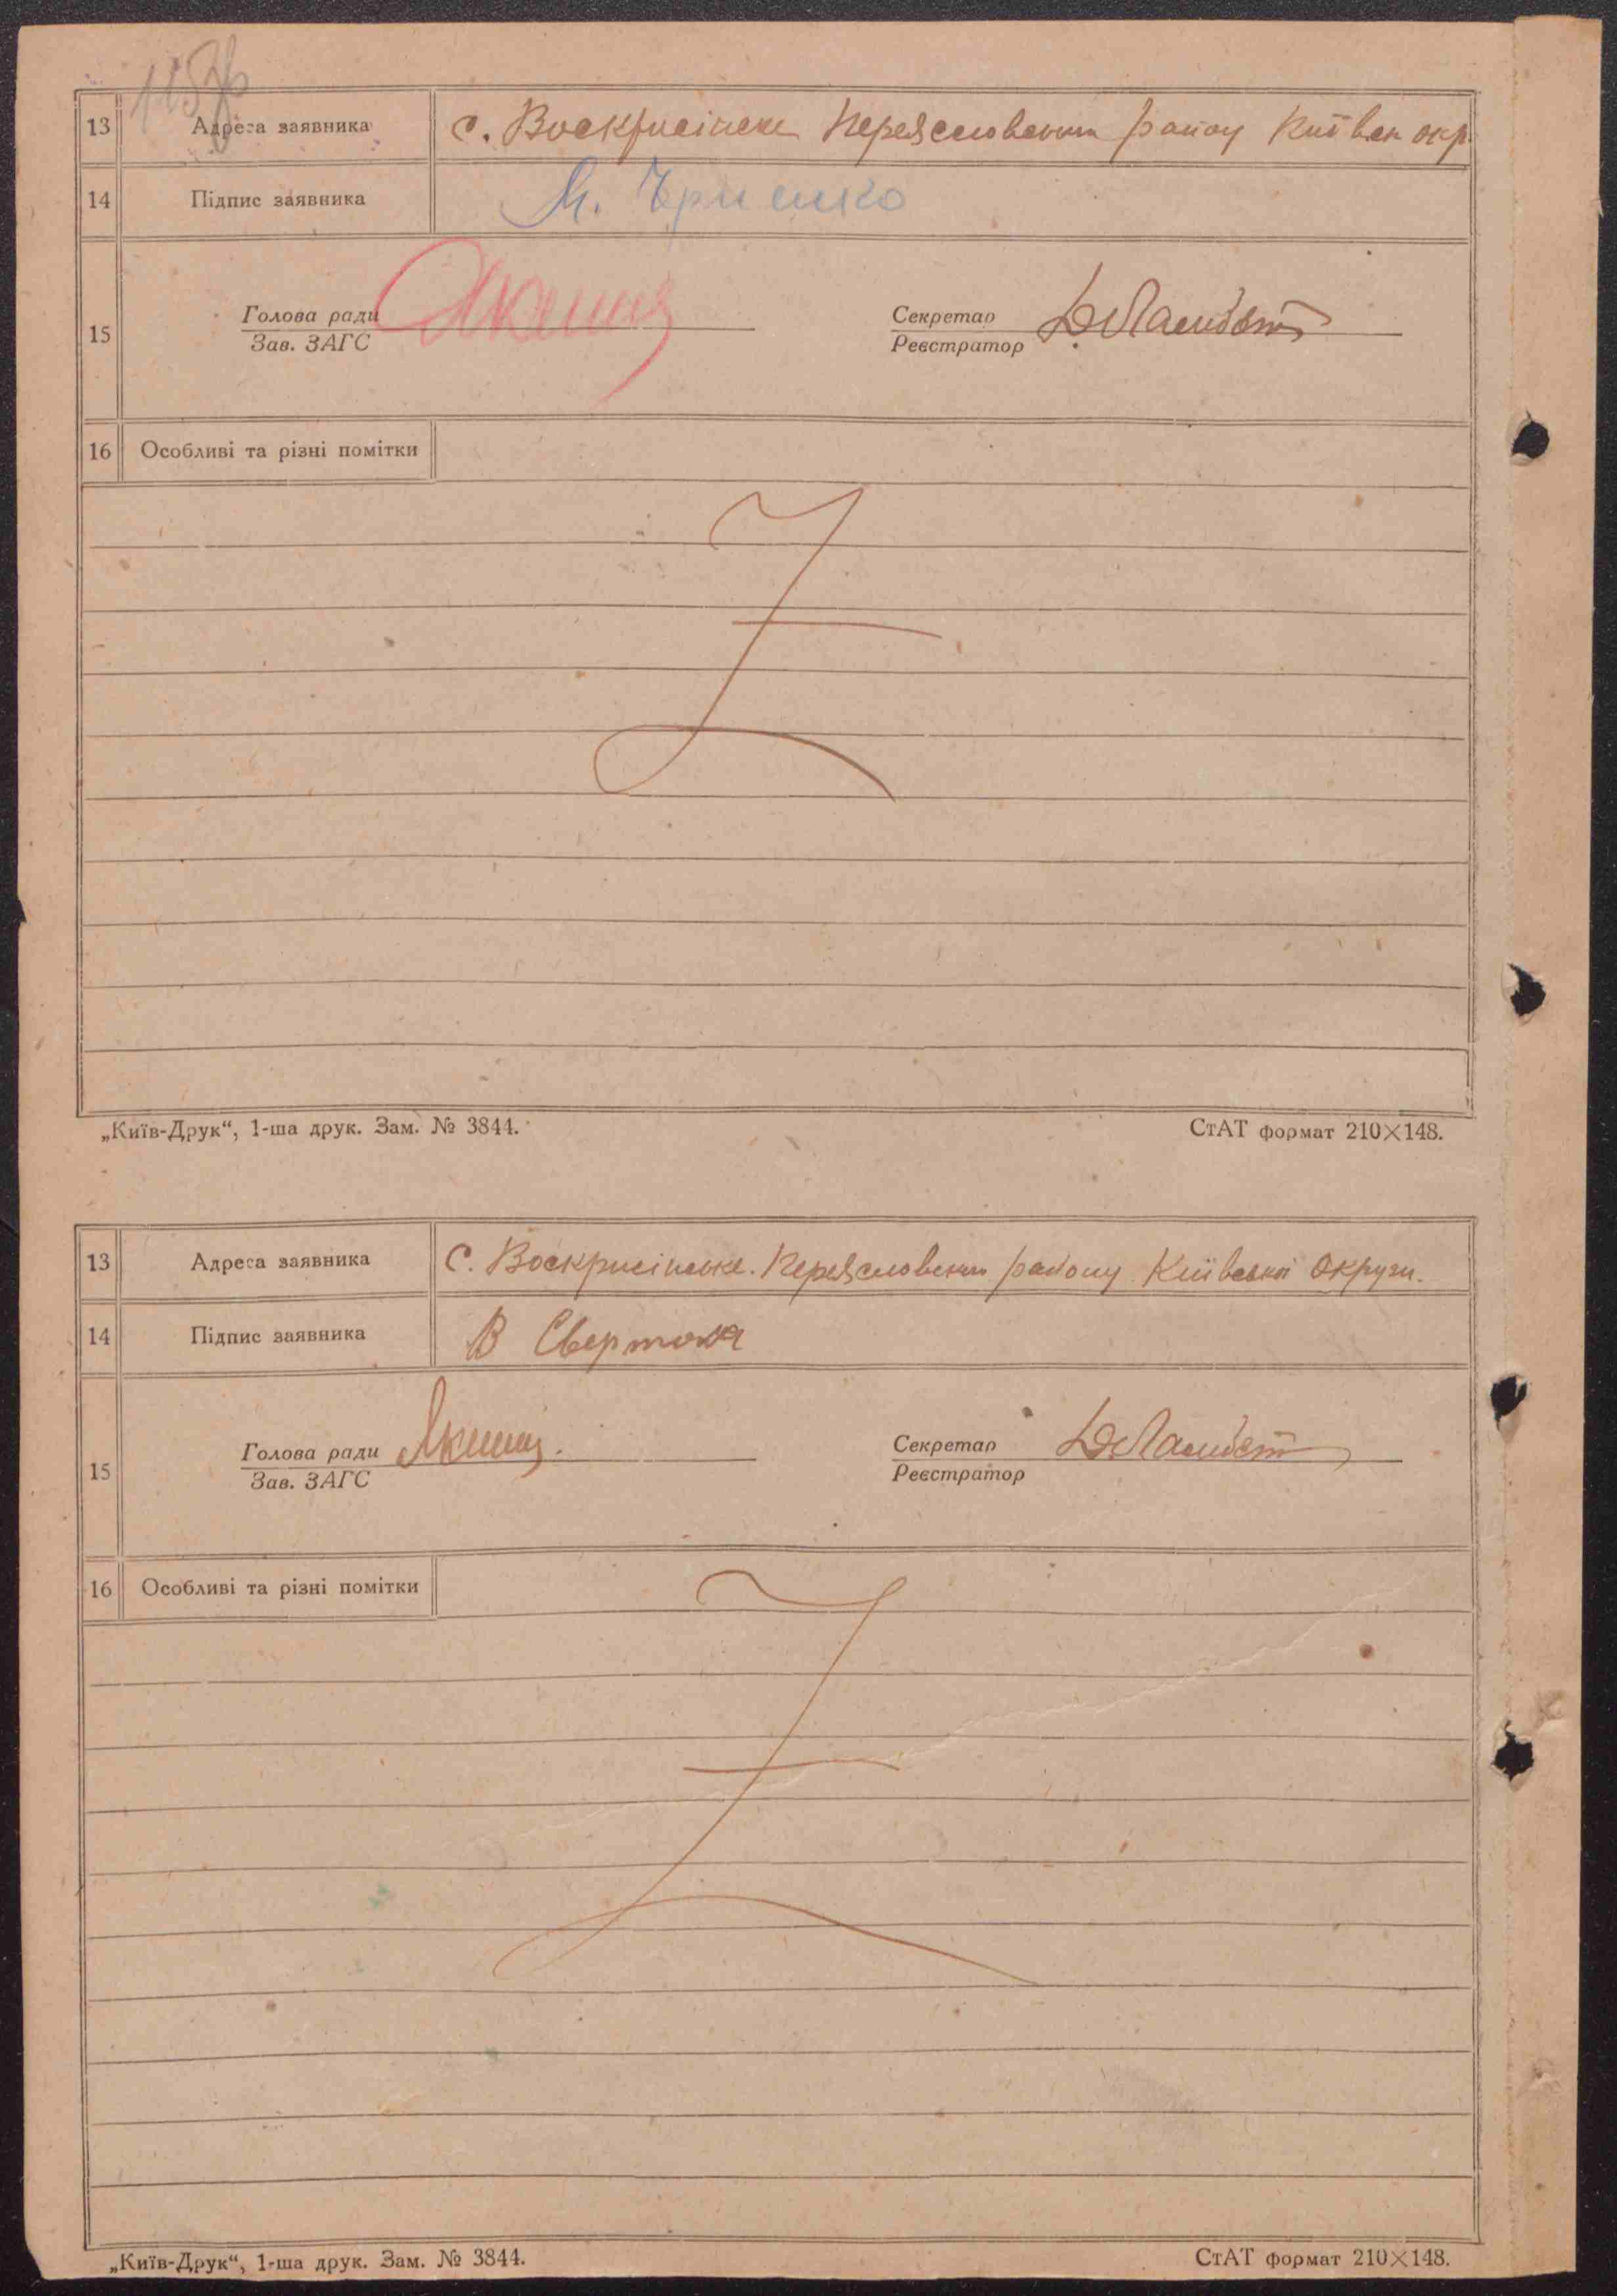 13 Адреса заявника с. Воскрисінске Переяславським району Київськ окр.
14 Підпис заявника М.
15 Голова ради Секретар
Зав. ЗАГС Реєстратор
16 Особливі та різні помітки
„Київ-Друк“, 1-ша друк. Зам. № 3844. СтАТ формат 210×148.
13 Адреса заявника С. Воскрисінське. Переясловським району Київської Округи.
14 Підпис заявника В
15 Голова ради Секретар
Зав. ЗАГС Реєстратор
16 Особливі та різні помітки
„Київ-Друк“, 1-ша друк. Зам. № 3844. СтАТ формат 210×148.